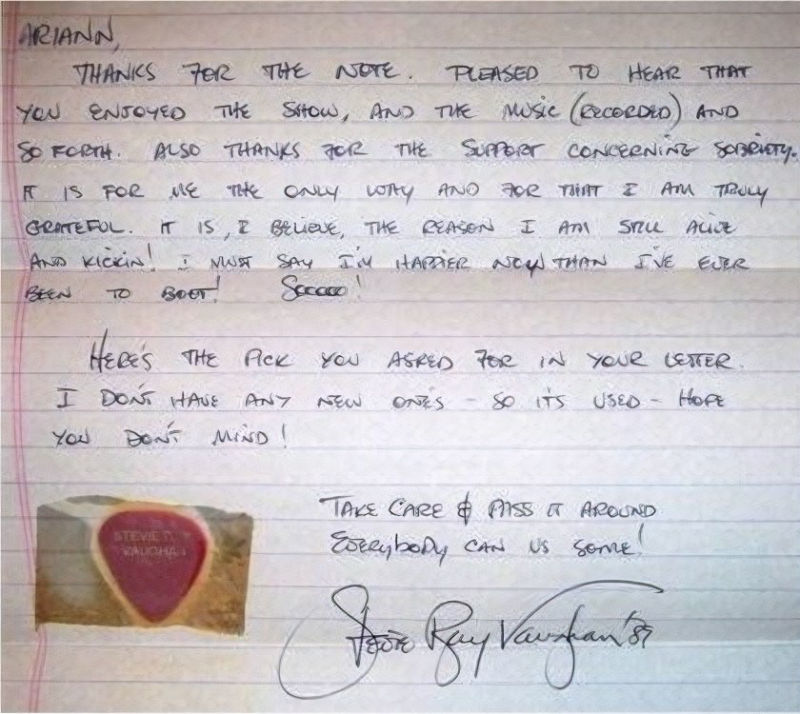 ARIANN,
THANKS FOR THE NOTE. PLEASED TO HEAR THAT
YOU ENJOYED THE SHOW, AND THE MUSIC (RECORDED) AND
SO FORTH. ALSO THANKS FOR THE SUPPORT CONCERNING SOBRIETY.
IT IS FOR ME THE ONLY WAY AND FOR THAT I AM TRULY
GRATEFUL. IT IS, I BELIEVE, THE REASON I AM STILL ALIVE
AND KICKIN! I MUST SAY I'M HAPPIER NOW THAN I'VE EVER
BEEN TO BOOT! Sooooo!
HERE'S THE PICK YOU ASKED FOR IN YOUR LETTER.
I DON'T HAVE ANY NEW ONE'S - SO IT'S USED - HOPE
YOU DON'T MIND!
TAKE CARE & PASS IT AROUND
EVERYBODY CAN US SOME!
STEVIE R
VAUGHAN
Stevie Ray Vaughan '87